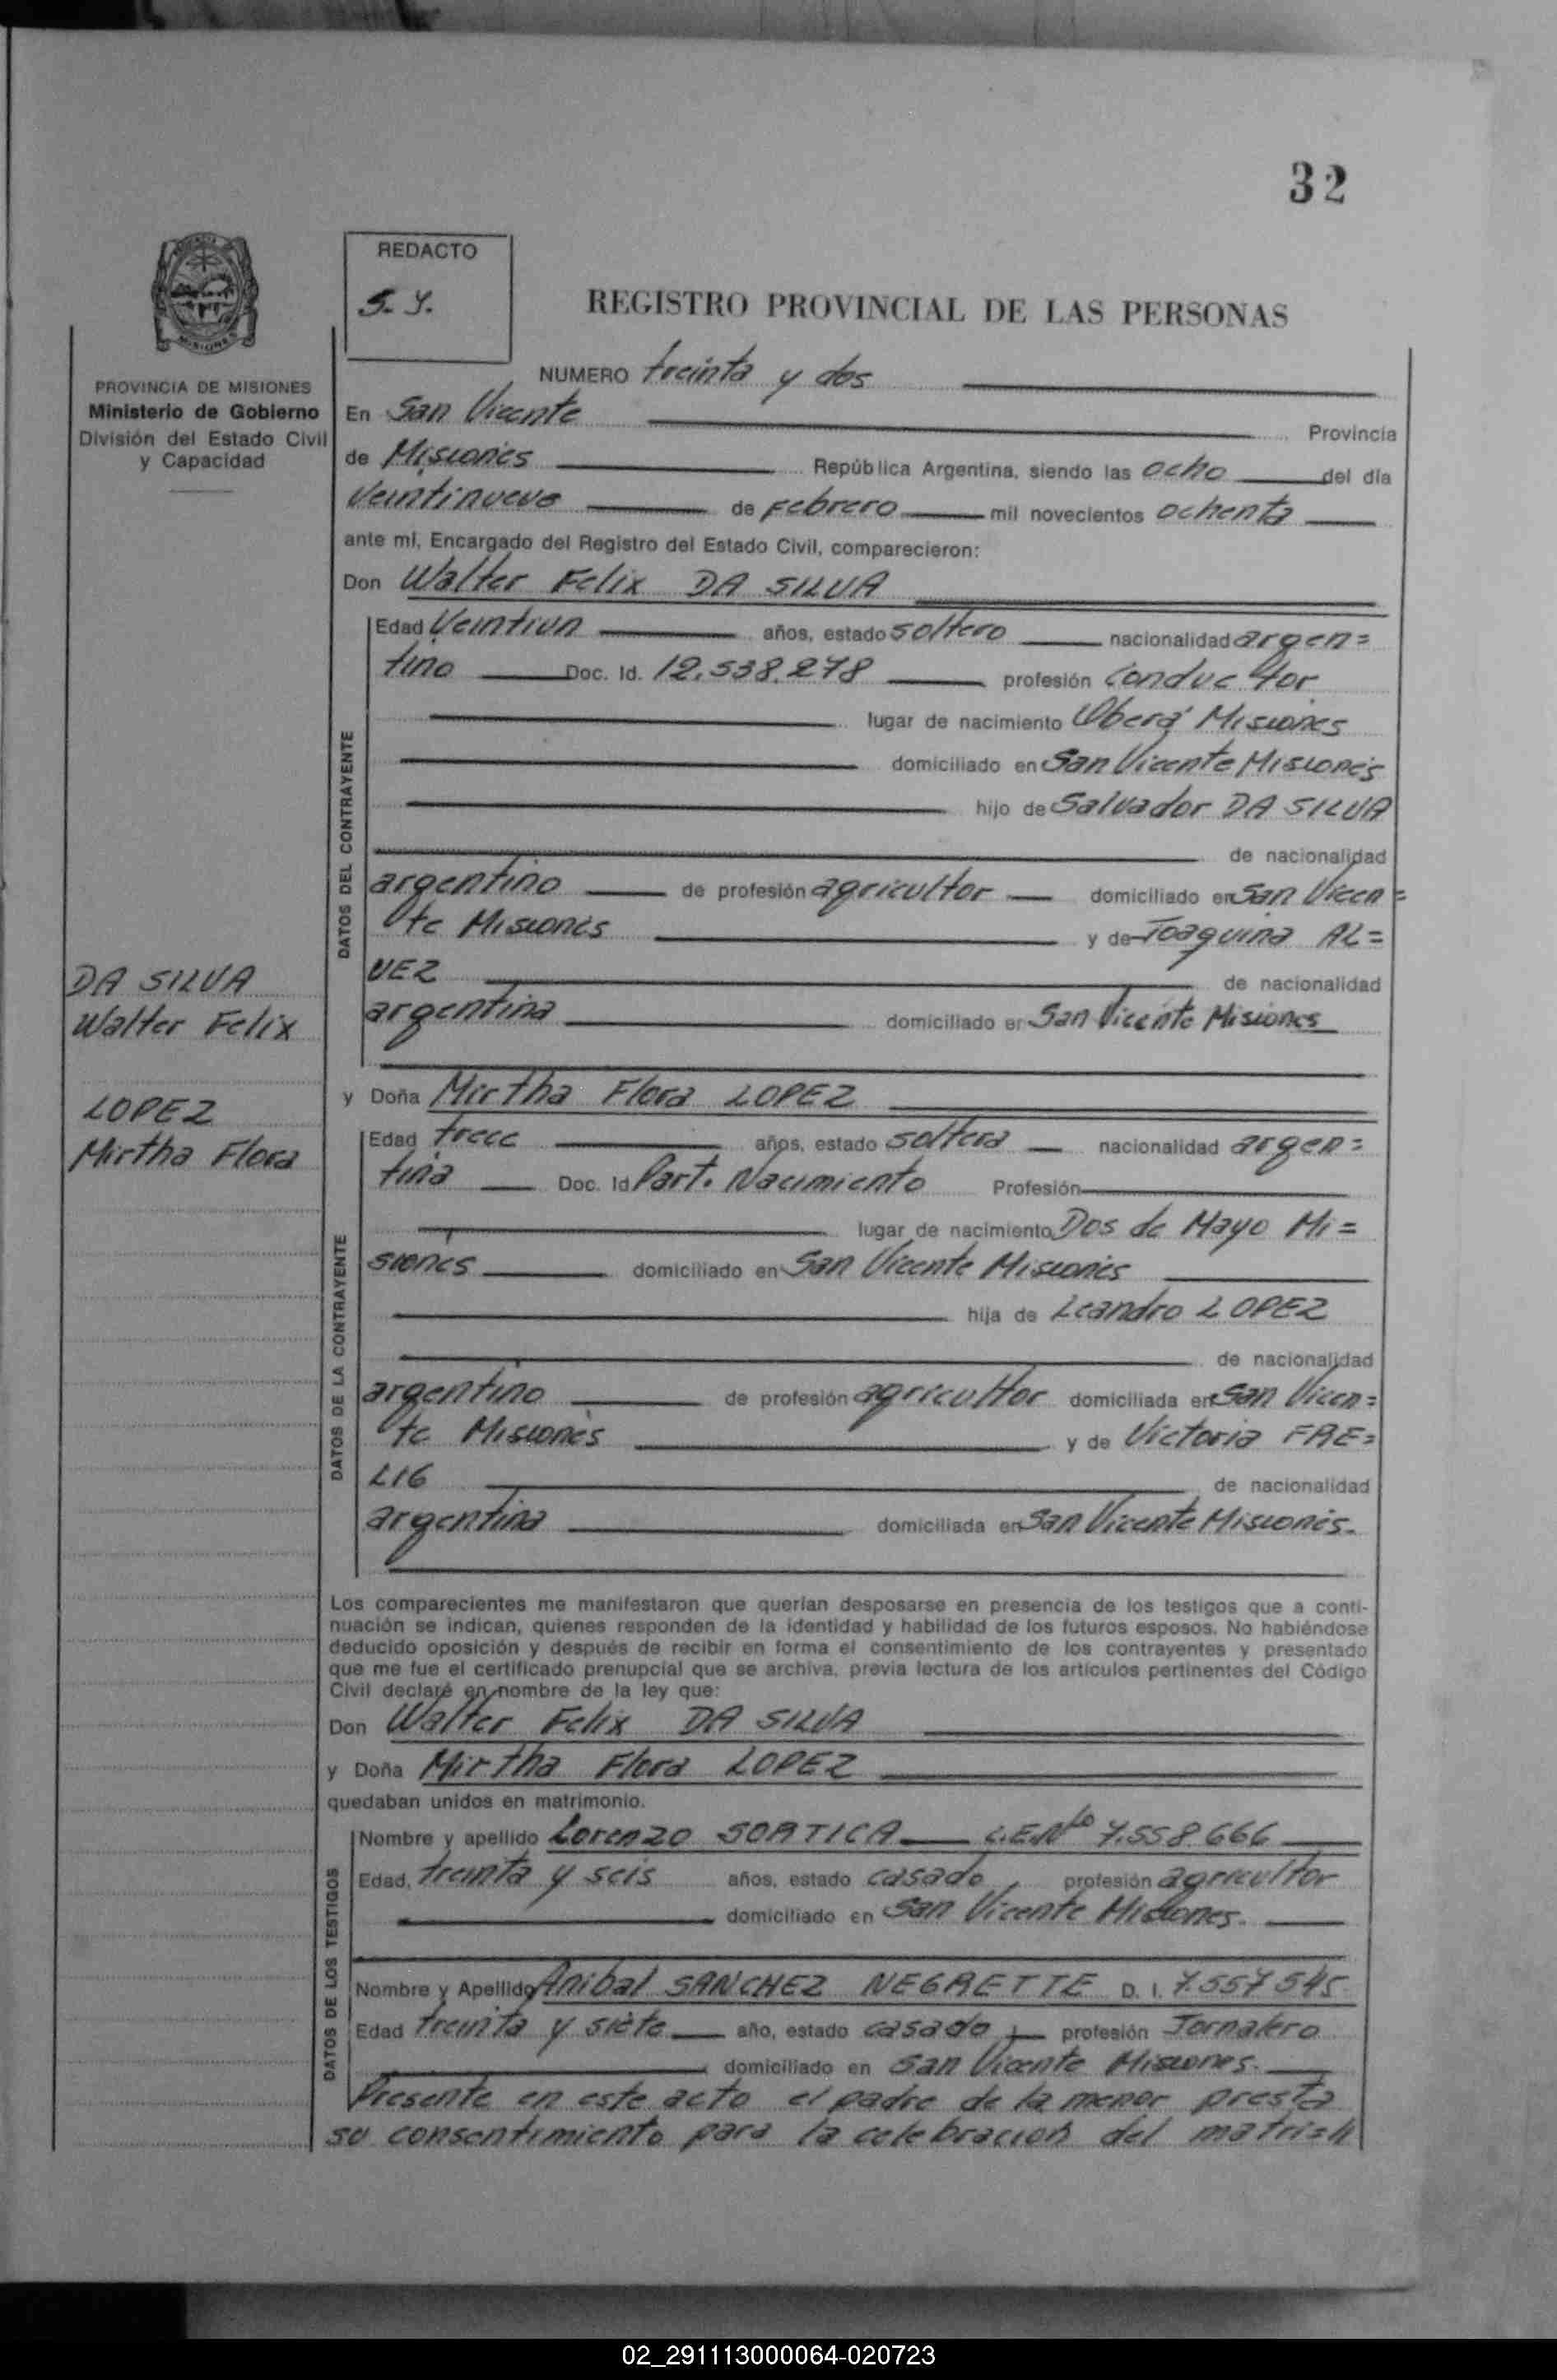 32
REDACTO
S. Y.
REGISTRO PROVINCIAL DE LAS PERSONAS
PROVINCIA DE MISIONES
Ministerio de Gobierno
División del Estado Civil
y Capacidad
NUMERO treinta y dos
En San Vicente Provincia
de Misiones República Argentina, siendo las ocho del día
Veintinueve de Febrero mil novecientos ochenta
ante mí, Encargado del Registro del Estado Civil, comparecieron:
Don Walter Felix DA SILVA
DATOS DEL CONTRAYENTE
Edad Veintiun años, estado soltero nacionalidad argen=
tino Doc. Id. 12.538.278 profesión Conductor
lugar de nacimiento Oberá Misiones
domiciliado en San Vicente Misiones
hijo de Salvador DA SILVA
de nacionalidad
argentino de profesión agricultor domiciliado en San Vicen=
te Misiones y de Joaquina AL=
VEZ de nacionalidad
argentina domiciliado en San Vicente Misiones
DA SILVA
Walter Felix
LOPEZ
Mirtha Flora
y Doña Mirtha Flora LOPEZ
DATOS DE LA CONTRAYENTE
Edad trece años, estado soltera nacionalidad argen=
tina Doc. Id Part. Nacimiento Profesión
lugar de nacimiento Dos de Mayo Mi=
siones domiciliado en San Vicente Misiones
hija de Leandro LOPEZ
de nacionalidad
argentino de profesión agricultor domiciliada en San Vicen=
te Misiones y de Victoria FRE=
LIG de nacionalidad
argentina domiciliada en San Vicente Misiones.
Los comparecientes me manifestaron que querían desposarse en presencia de los testigos que a conti-
nuación se indican, quienes responden de la identidad y habilidad de los futuros esposos. No habiéndose
deducido oposición y después de recibir en forma el consentimiento de los contrayentes y presentado
que me fue el certificado prenupcial que se archiva, previa lectura de los artículos pertinentes del Código
Civil declaré en nombre de la ley que:
Don Walter Felix DA SILVA
y Doña Mirtha Flora LOPEZ
quedaban unidos en matrimonio.
DATOS DE LOS TESTIGOS
Nombre y apellido Lorenzo SORTICA 7.558.666
Edad, treinta y seis años, estado casado profesión agricultor
domiciliado en San Vicente Misiones.
Nombre y Apellido Anibal SANCHEZ NEGRETTE D. I. 7.557545
Edad treinta y siete año, estado casado profesión Jornalero
domiciliado en San Vicente Misiones.
Presente en este acto el padre de la menor presta
su consentimiento para la celebracion del matri=//
02_291113000064-020723